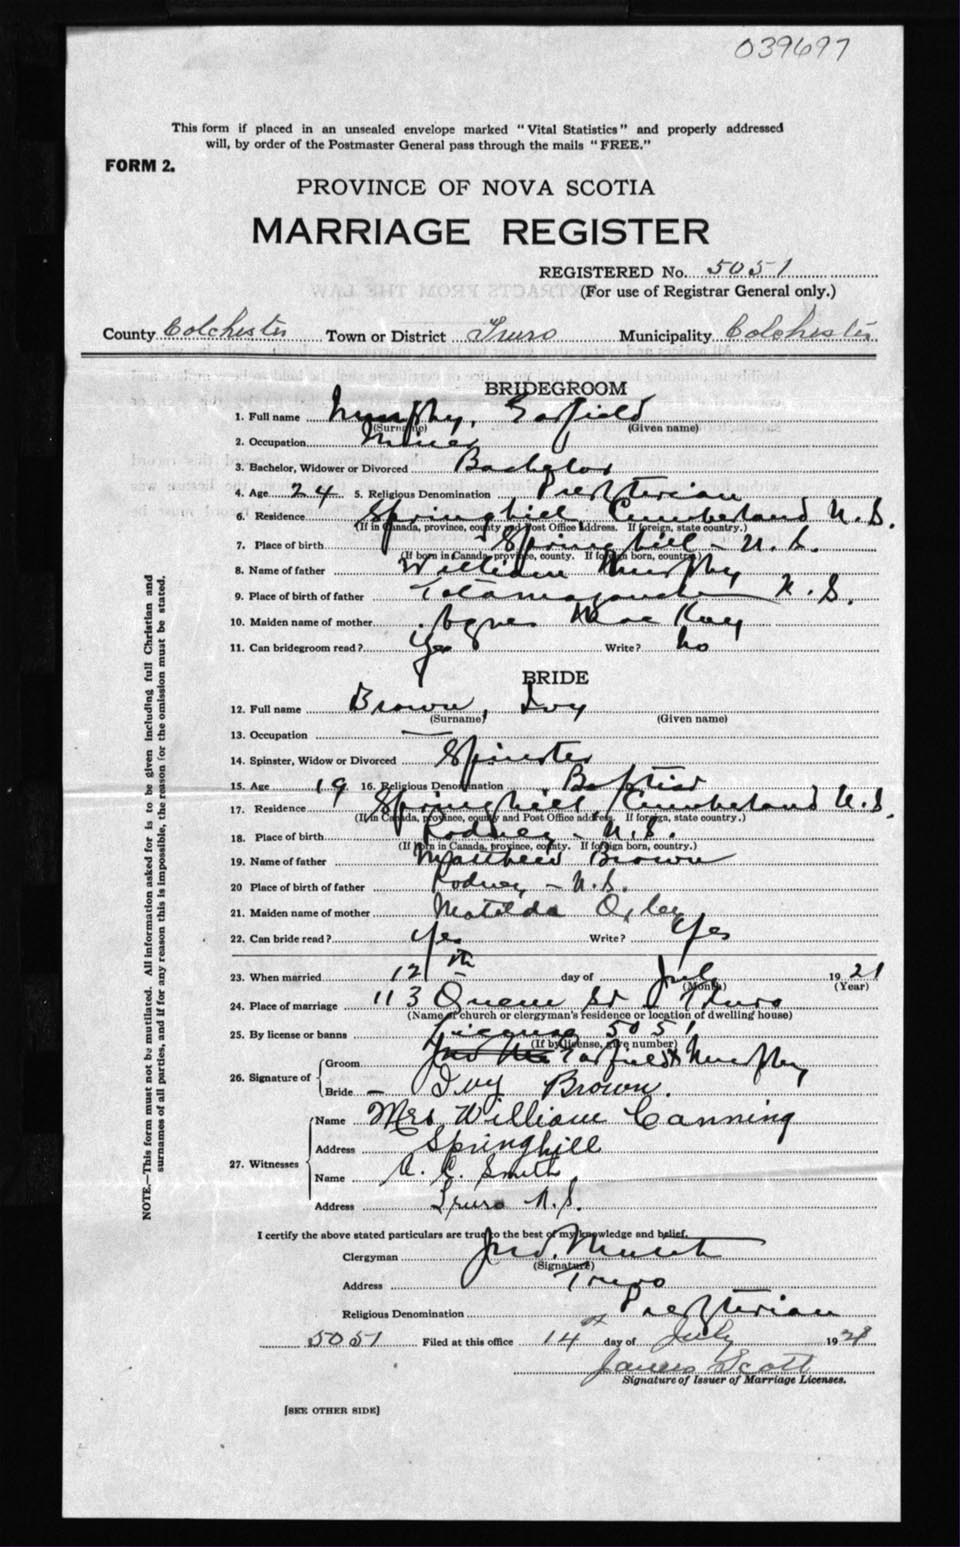 039697
This form if placed in an unsealed envelope marked "Vital Statistics" and properly addressed
will, by order of the Postmaster General pass through the mails "FREE."
FORM 2.
PROVINCE OF NOVA SCOTIA
MARRIAGE REGISTER
REGISTERED No. 5051
(For use of Registrar General only.)
County Colchester Town or District Truro Municipality Colchester
BRIDEGROOM
1. Full name Murphy, Garfield
(Surname) (Given name)
2. Occupation Miner
3. Bachelor, Widower or Divorced Bachelor
4. Age 24 5. Religious Denomination Presbyterian
6. Residence Springhill Cumberland N.S.
(If in Canada, province, county and Post Office address. If foreign, state country.)
7. Place of birth Springhill - N.S.
(If born in Canada, province, county. If foreign born, country.)
8. Name of father William Murphy
9. Place of birth of father Tatamagouche N.S.
10. Maiden name of mother Agnes MacKay
11. Can bridegroom read? Yes Write? No
BRIDE
12. Full name Brown, Ivy
(Surname) (Given name)
13. Occupation —
14. Spinster, Widow or Divorced Spinster
15. Age 19 16. Religious Denomination Baptist
17. Residence Springhill Cumberland N.S.
(If in Canada, province, county and Post Office address. If foreign, state country.)
18. Place of birth Rodney - N.S.
(If born in Canada, province, county. If foreign born, country.)
19. Name of father Matthew Brown
20 Place of birth of father Rodney - N.S.
21. Maiden name of mother Matilda Oxley
22. Can bride read? Yes Write? Yes
23. When married 12th day of July 1921
(Month) (Year)
24. Place of marriage 113 Queen St Truro
(Name of church or clergyman's residence or location of dwelling house)
25. By license or banns License 5051
(If by license, give number)
26. Signature of Groom Garfield x Murphy
Bride — Ivy Brown.
27. Witnesses Name Mrs William Canning
Address Springhill
Name A. C. Smith
Address Truro N.S.
I certify the above stated particulars are true to the best of my knowledge and belief.
Clergyman Jno.
(Signature)
Address Truro
Religious Denomination Presbyterian
5051 Filed at this office 14th day of July 1921
James Scott
Signature of Issuer of Marriage Licenses.
[SEE OTHER SIDE]
NOTE.—This form must not be mutilated. All information asked for is to be given including full Christian and
surnames of all parties, and if for any reason this is impossible, the reason for the omission must be stated.